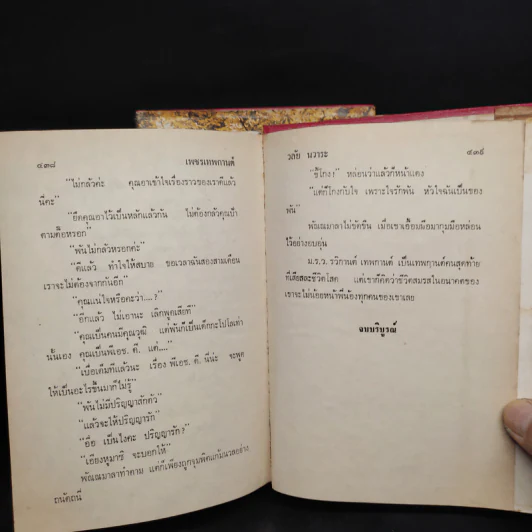 ๔๓๘ เพชรเทพกานต์
"ไม่กลัวค่ะ คุณอาเข้าใจเรื่องราวของเราดีแล้ว
นี่คะ"
"ยึดคุณอาไว้เป็นหลักแล้วกัน ไม่ต้องกลัวคุณป้า
ตามตื๊อหรอก"
"พันไม่กลัวหรอกค่ะ"
"ดีแล้ว ทำใจให้สบาย ขอเวลาฉันสองสามเดือน
เราจะไม่ต้องจากกันอีก"
"คุณแน่ใจหรือคะว่า....?"
"อีกแล้ว ไม่เอานะ เลิกพูดเสียที"
"คุณเป็นคนมีคุณวุฒิ แต่พันก็เป็นเด็กกะโปโลเท่า
นั้นเอง คุณเป็นพีเอช. ดี. แต่...."
"เบื่อเต็มทีแล้วนะ เรื่อง พีเอช. ดี. นี่น่ะ จะพูด
ให้เป็นอะไรขึ้นมาก็ไม่รู้"
"พันไม่มีปริญญาสักตัว"
"แล้วจะให้ปริญญารัก"
"อื๋อ เป็นไงคะ ปริญญารัก?"
"เอียงหูมาซิ จะบอกให้"
พัณณมาลาทำตาม แต่ก็เพียงถูกจุมพิตแก้มนวลอย่าง
ถนัดถนี่
วลัย นวาระ ๔๓๙
"ขี้โกง!" หล่อนว่าแล้วก็หน้าแดง
"แต่ก็โกงกับใจ เพราะใจรักพัน หัวใจฉันเป็นของ
พัน"
พัณณมาลาไม่ขัดขืน เมื่อเขาเอื้อมมือมากุมมือหล่อน
ไว้อย่างอบอุ่น
ม.ร.ว. รวิกานต์ เทพกานต์ เป็นเทพกานต์คนสุดท้าย
ที่เสียสละชีวิตโสด แต่เขาก็คิดว่าชีวิตสมรสในอนาคตของ
เขาจะไม่น้อยหน้าพี่น้องทุกคนของเขาเลย
จบบริบูรณ์